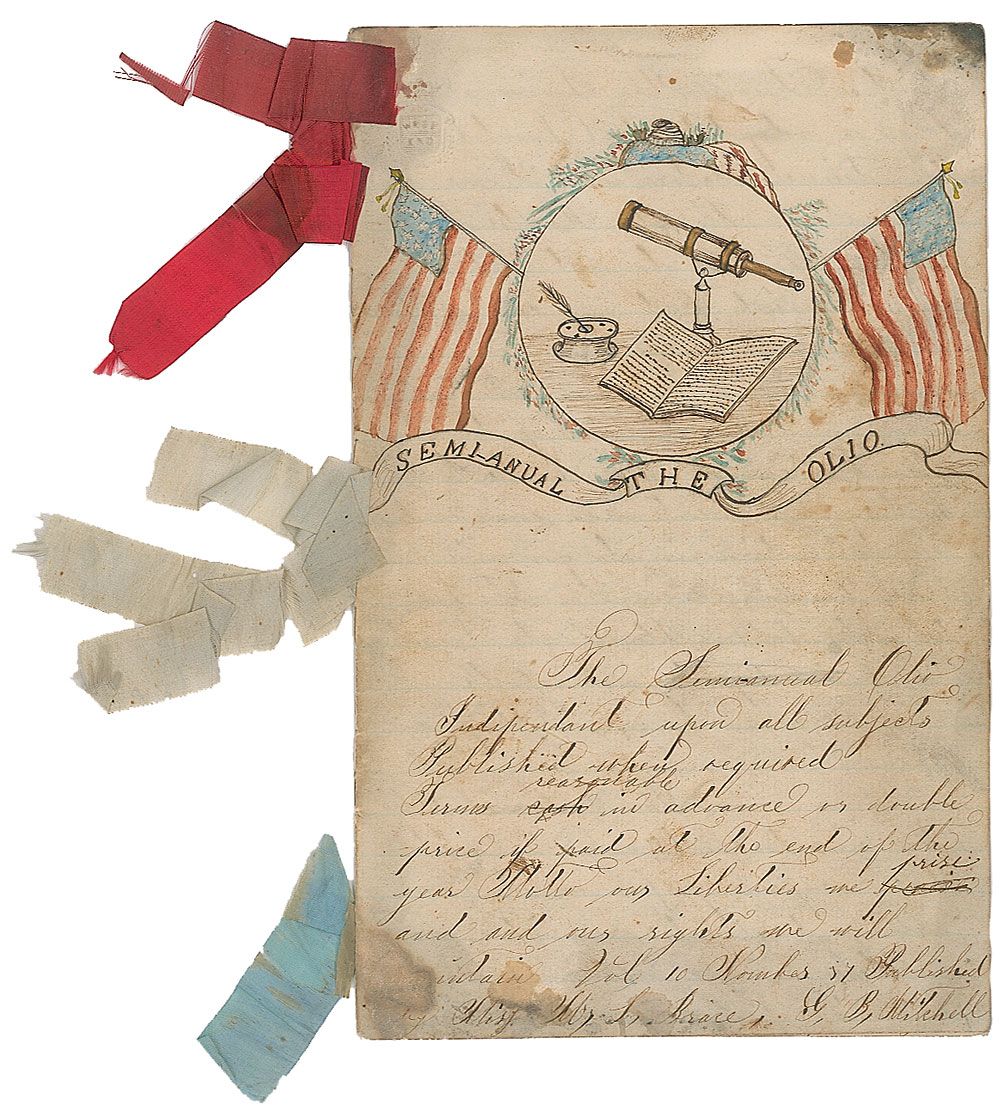 SEMI-ANUAL THE OLIO.
The Semianual Olio
Indipendant upon all subjects
Published when required
reasonable
Terms cash in advance or double
price if paid at the end of the
prise
year Motto our Liberties we
and and our rights we will
Vol 10 Number 37 Published
by Miss L, Brace, G, B, Mitchell